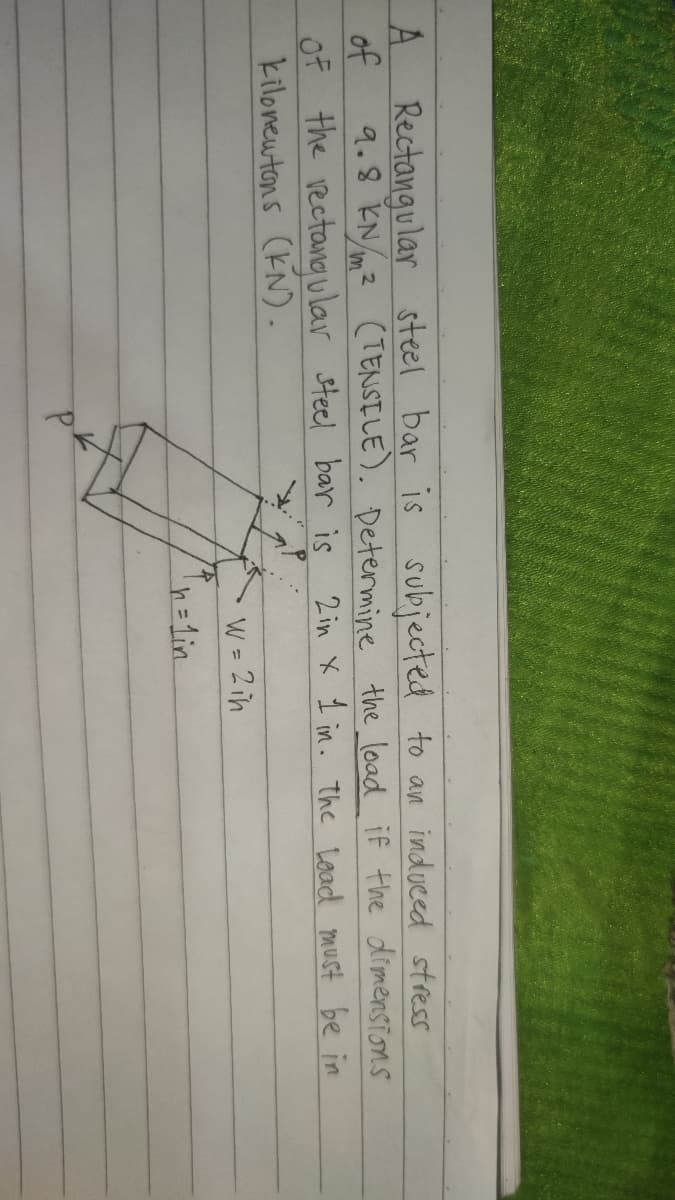 A Rectangular steel bar is subjected to an induced stress
of 9.8 KN/m² (TENSILE). Determine the load if the dimensions
of the rectangular steel bar is 2in x 1in. The Load must be in
kilonewtons (KN).
P
W = 2in
h = 1in
P